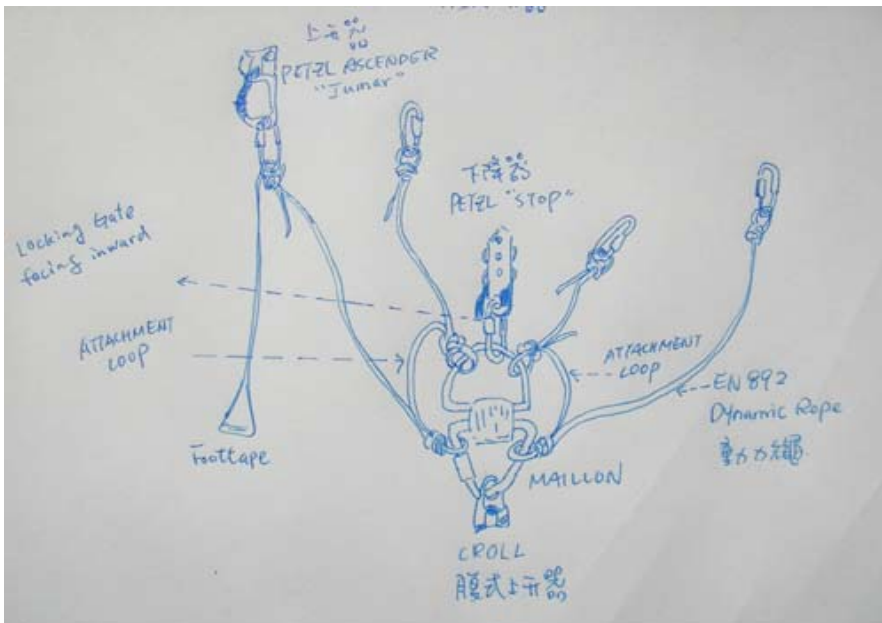 上升器
PETZL ASCENDER
"Jumar"
下降器
PETZL "STOP"
Locking Gate
facing inward
ATTACHMENT
LOOP
ATTACHMENT
LOOP
EN 892
Dynamic Rope
動力繩
Foottape
MAILLON
CROLL
腹式上升器